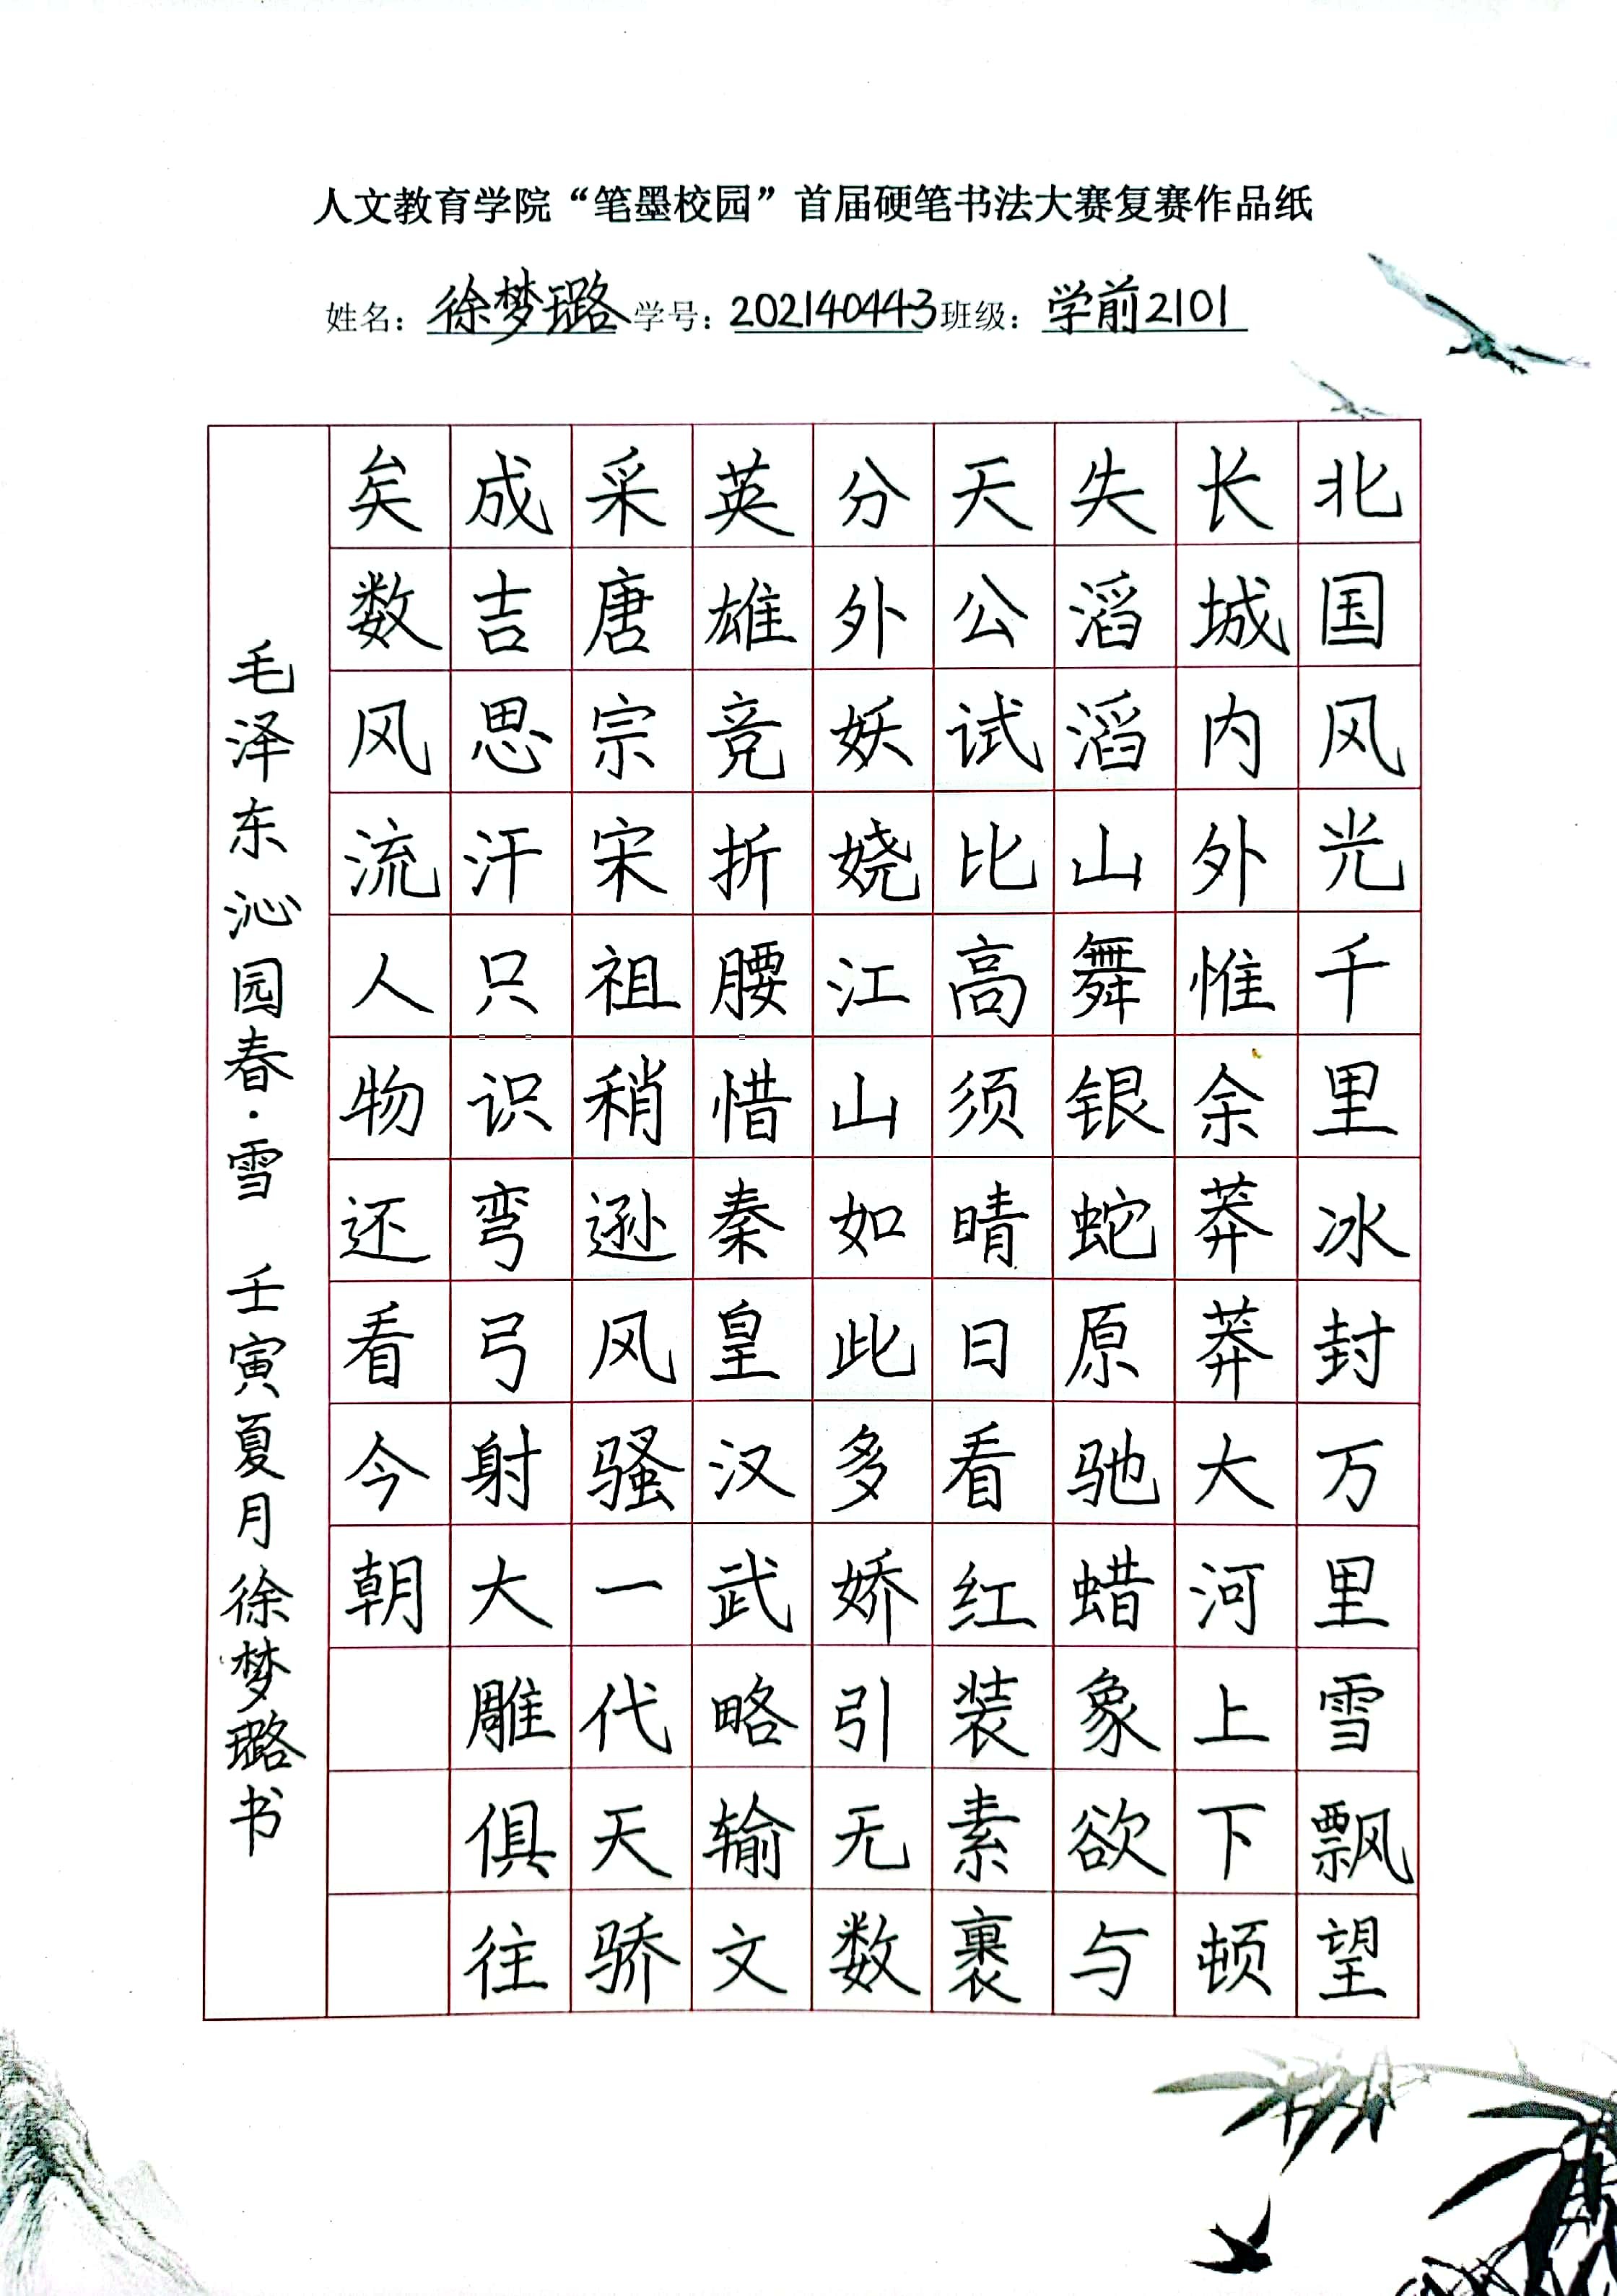 人文教育学院“笔墨校园”首届硬笔书法大赛复赛作品纸
姓名：徐梦璐 学号：202140443 班级：学前2101
北国风光千里冰封万里雪飘望
长城内外惟余莽莽大河上下顿
失滔滔山舞银蛇原驰蜡象欲与
天公试比高须晴日看红装素裹
分外妖娆江山如此多娇引无数
英雄竞折腰惜秦皇汉武略输文
采唐宗宋祖稍逊风骚一代天骄
成吉思汗只识弯弓射大雕俱往
矣数风流人物还看今朝
毛泽东沁园春·雪 壬寅夏月徐梦璐书